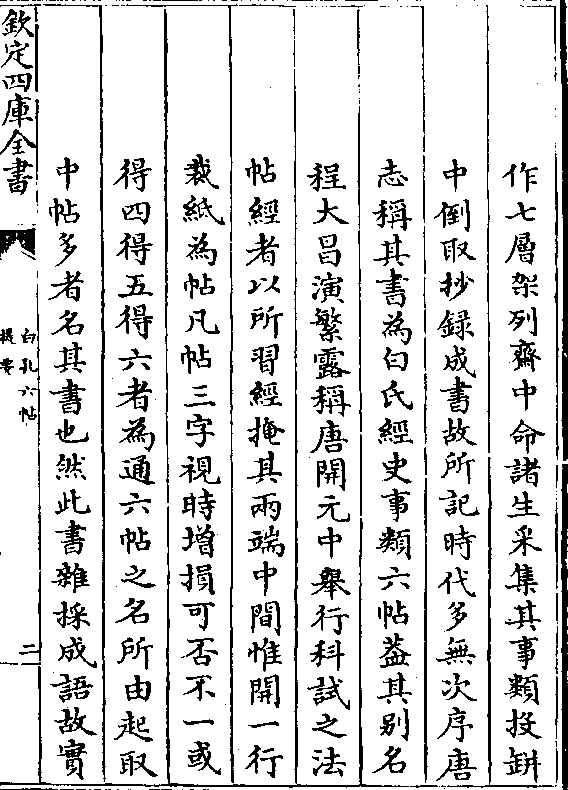 作七層架列齋中命諸生采集其事類投缾
中倒取抄録成書故所記時代多無次序唐
志稱其書為白氏經史事類六帖葢其别名
程大昌演繁露稱唐開元中舉行科試之法
帖經者以所習經掩其兩端中間惟開一行
裁紙為帖凡帖三字視時增損可否不一或
得四得五得六者為通六帖之名所由起取
中帖多者名其書也然此書雜採成語故實
欽定四庫全書
白孔六帖
提要
二